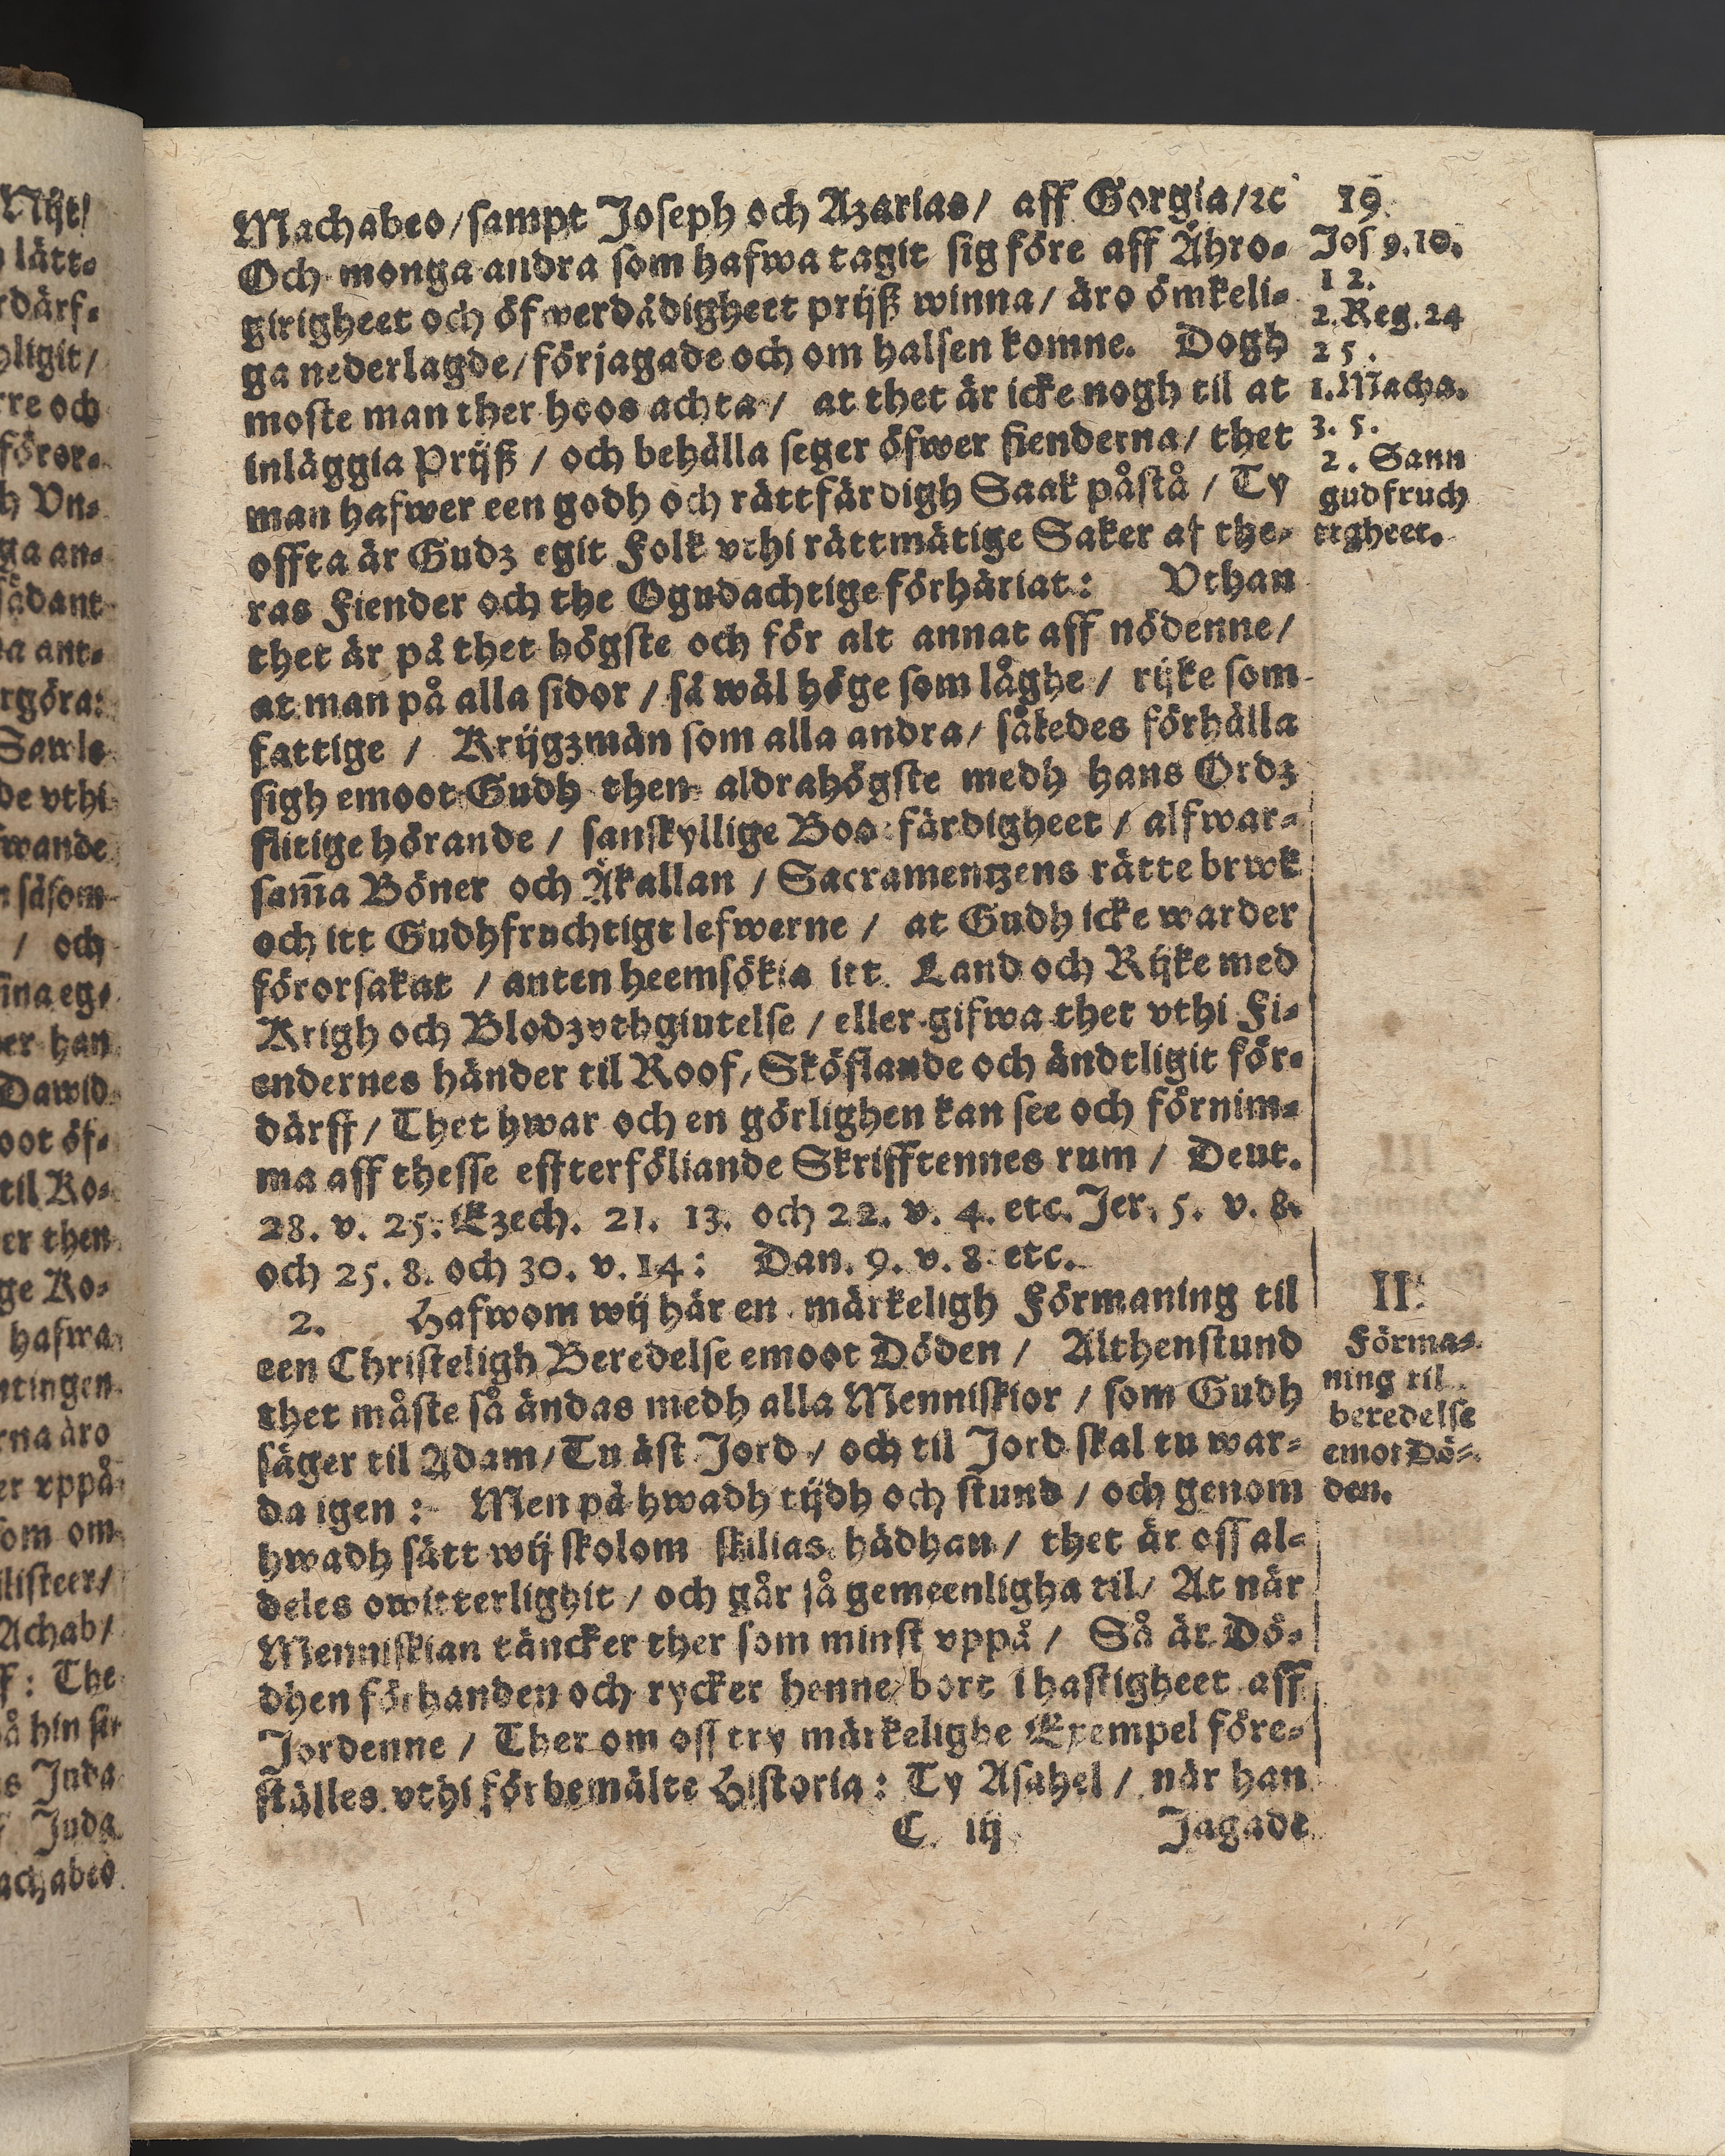 Machabeo/sampt Joseph och Azarias/ aff Gorgia/ꝛc
Och monga andra som hafwa tagit sig före aff Ähro⸗
girigheet och öfwerdådigheet prijß winna/ äro ömkeli⸗
ga nederlagde/förjagade och om halsen komne. Dogh
moste man ther hoos achta/ at thet är icke nogh til at
inläggia Prijß / och behålla seger öfwer fienderna/ thet
man hafwer een godh och rättfärdigh Saak påstå / Ty
offta är Gudz egit Folk vthi rättmätige Saker af the⸗
ras Fiender och the Ogudachtige förhäriat: Vthan
thet är på thet högste och för alt annat aff nödenne/
at man på alla sidor / så wäl höge som låghe / rijke som
fattige / Krijgzmän som alla andra/ såkedes förhålla
sigh emoot Gudh then aldrahögste medh hans Ordz
flitige hörande / sanskyllige Boo färdigheet / alfwar⸗
sam̄a Böner och Åkallan / Sacramentzens rätte brwk
och itt Gudhfruchtigt lefwerne / at Gudh icke warder
förorsakat / anten heemsökia itt Land och Rijke med
Krigh och Blodzvthgiutelse / eller gifwa thet vthi Fi⸗
endernes händer til Roof/ Sköflande och ändtligit för⸗
därff/ Thet hwar och en görlighen kan see och förnim⸗
ma aff thesse effterföliande Skrifftennes rum / Deut.
28. v. 25. Ezech. 21. 13. och 22. v. 4. etc. Jer. 5. v. 8.
och 25. 8. och 30. v. 14: Dan. 9. v. 8 etc.
2. Hafwom wij här en märkeligh Förmaning til
een Christeligh Beredelse emoot Döden / Althenstund
thet måste så ändas medh alla Menniskior / som Gudh
säger til Adam/Tu äst Jord / och til Jord skal tu war⸗
da igen: Men på hwadh tijdh och stund / och genom
hwadh sätt wij skolom skilias hädhan/ thet är oss al⸗
deles owitterlighit / och går så gemeenligha til/ At när
Menniskian täncker ther som minst vppå / Så är Dö⸗
dhen förhanden och rycker henne bort i hastigheet aff
Jordenne / Ther om oss try märkelighe Exempel före⸗
ställes vthi förbemälte Historia: Ty Asahel / när han
C iij Jagade
19
Jos 9.10.
12.
2.Reg.24
25.
1.Macha.
3. 5.
2. Sann
gudfruch
tigheet.
II.
Förma⸗
ning til
beredelse
emot Dö⸗
den.